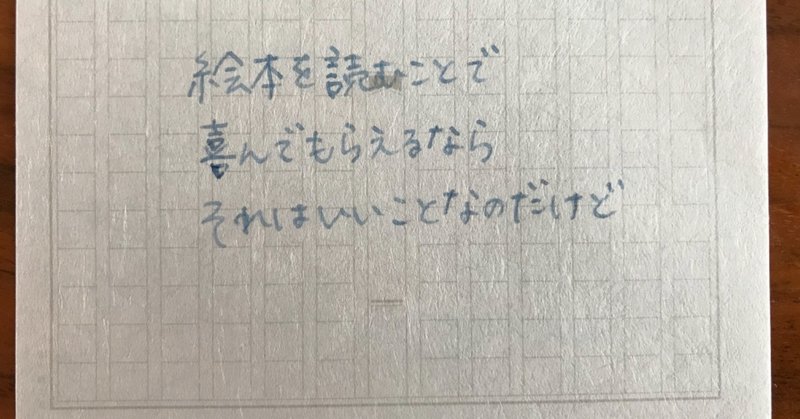 絵本を読むことで
喜んでもらえるなら
それはいいことなのだけど